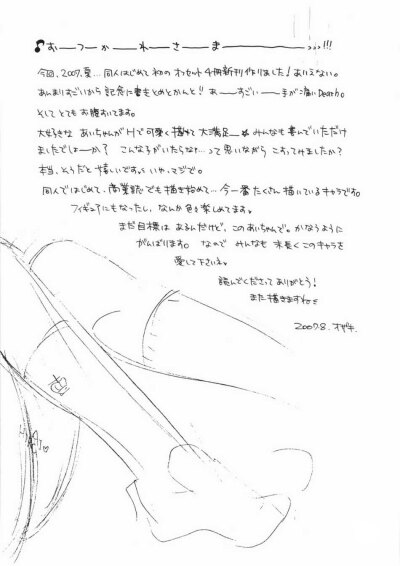 ♪おーつーかーれーさーまー―――――――っっっ!!!
今回、2007.夏…同人はじめて初の オフセット4冊新刊作りました!ありえない。
あんまりすごいから記念に書きとめとかんと!! あーーすごいーー手が痛いDeath。
そしてとてもお腹すいてます。
大好きな あいちゃんがHで可愛く描けて 大満足― みんなも喜んでいただけ
ましたでしょーか? こんな子がいたらな…って思いながら こすってみましたか?
本当、そうだと 嬉しいですっ いや、マジで。
同人ではじめて、商業誌でも描き始めて…今一番たくさん描いているキャラです。
フィギュアにもなったし、なんか色々楽しめてます。
まだ目標は あるんだけど、このあいちゃんで。かなうように
がんばります。 なので みんなも 末長く このキャラを
愛して下さいネ。
読んでくださって ありがとう!
また 描きますね
2007.8.オザキ.